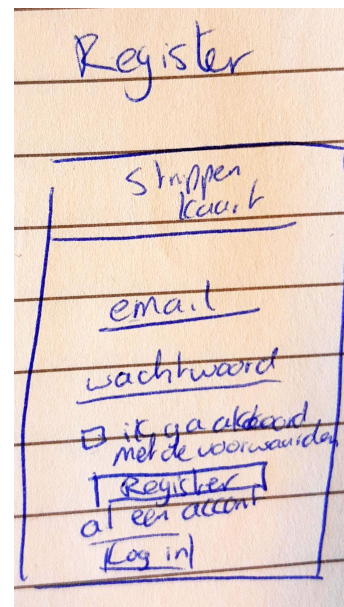 Register
Strippen
kaart
email
wachtwoord
ik ga akkoord
met de voorwaarden
Register
al een accont
Log in